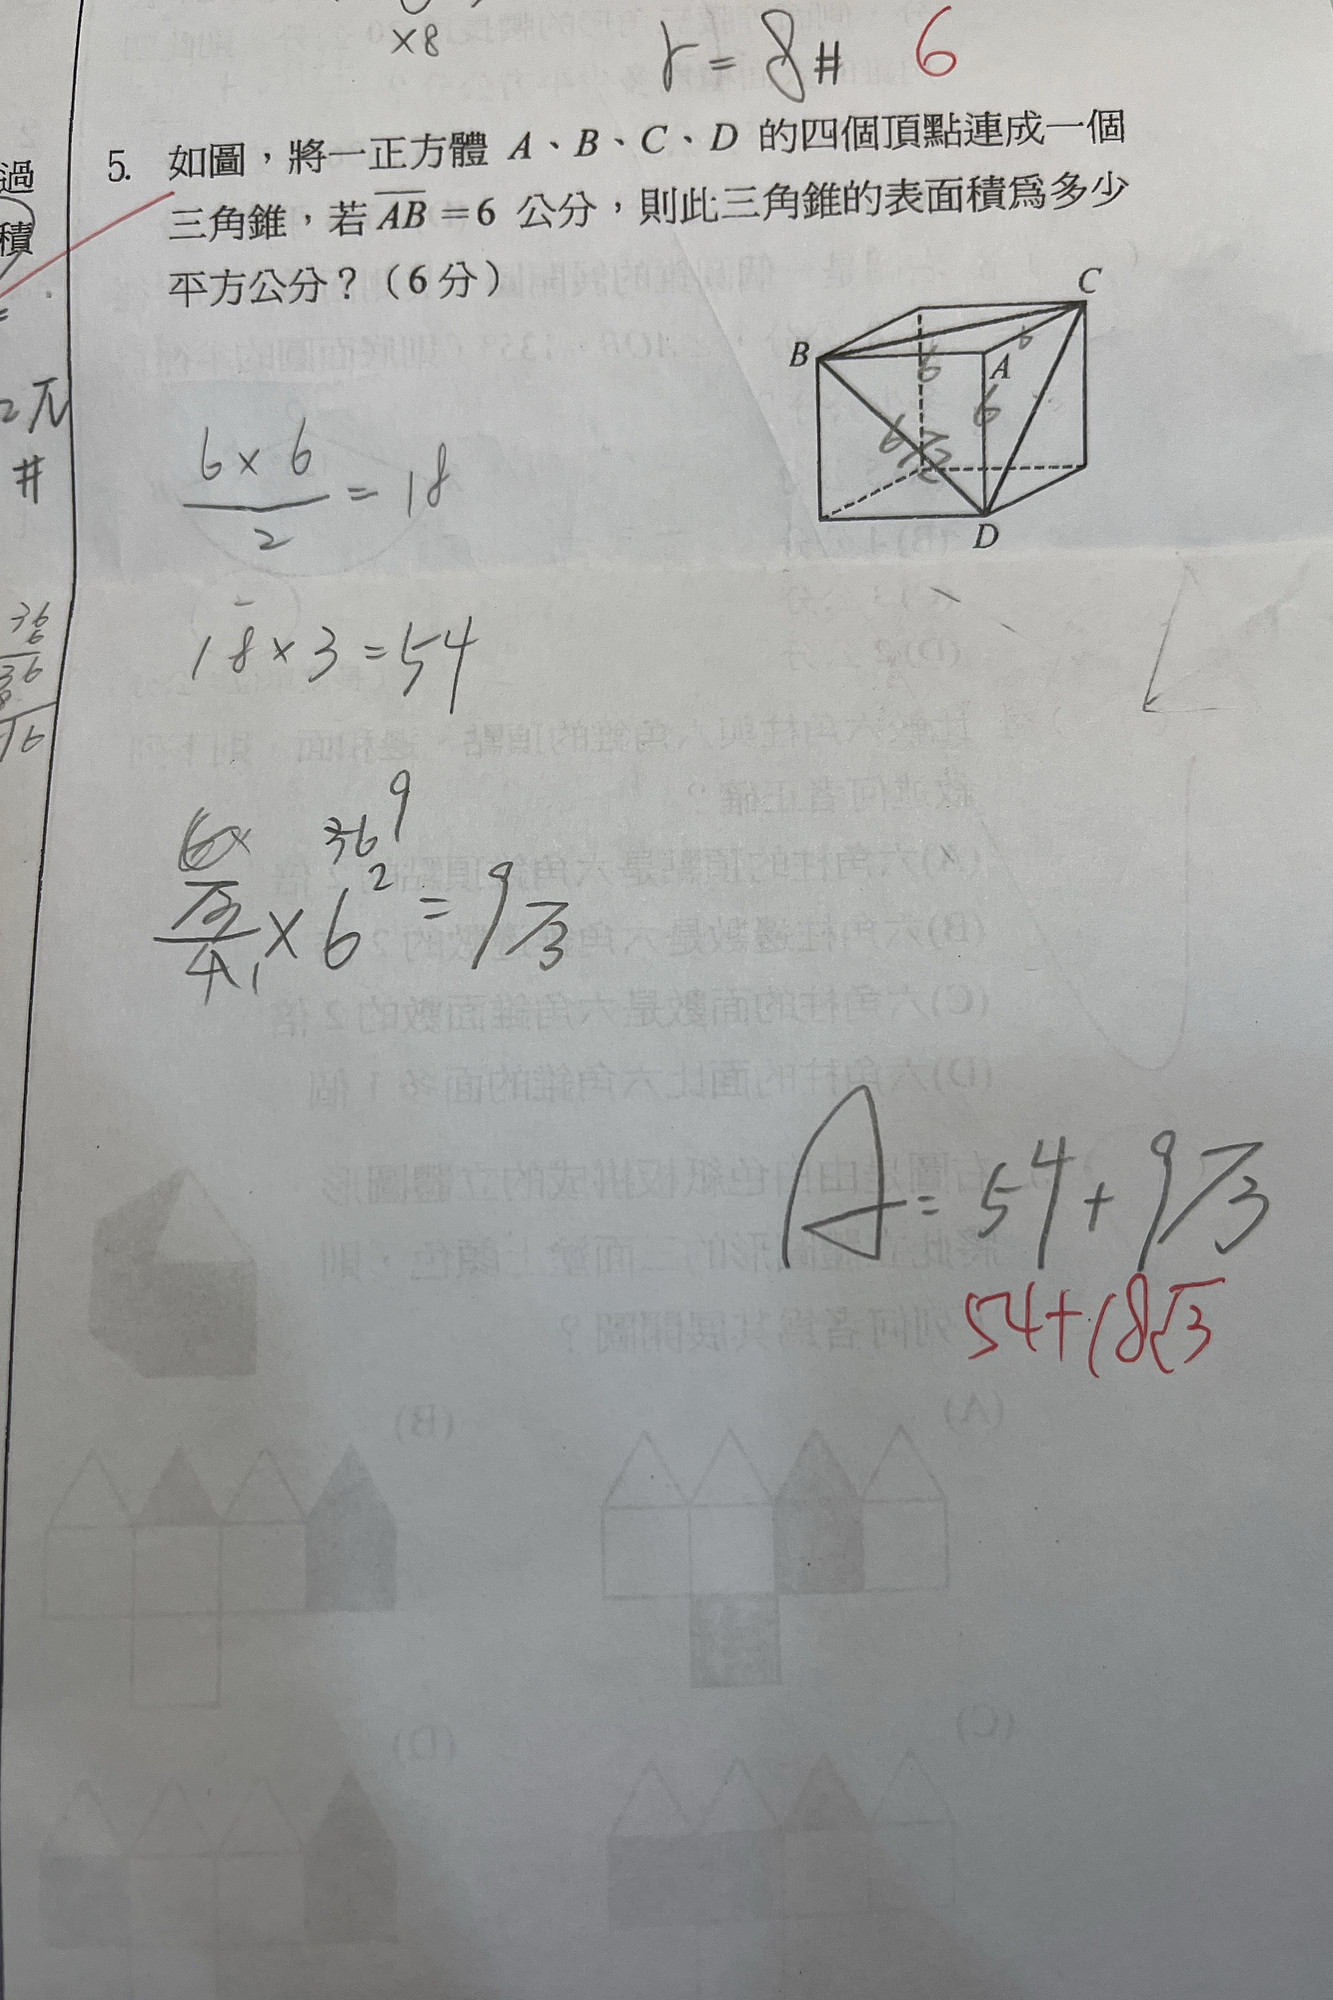 ×8
r = 8# 6
5. 如圖，將一正方體 A、B、C、D 的四個頂點連成一個
三角錐，若 AB = 6 公分，則此三角錐的表面積為多少
平方公分？（6 分）
過
積
2π
#
C
B
A
D
6
6
6
6√2
6×6/2 = 18
18×3 = 54
36
6
36
16
6×
36 9
√3/4 1 × 6² = 9√3
A = 54 + 9√3
54+18√3